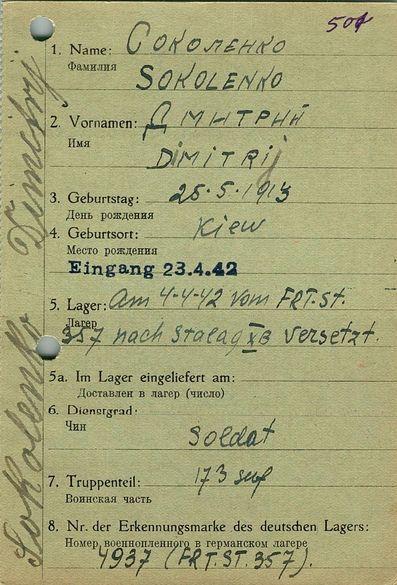 501
1. Name: Соколенко
Фамилия
SOKOLENKO
2. Vornamen: Дмитрий
Имя
DiMITRij
3. Geburtstag: 25·5·1913
День рождения
4. Geburtsort: Kiew
Место рождения
Eingang 23.4.42
5. Lager: Am 4-4-42 vom FRT.St.
Лагер
357 nach Stalag XB versetzt.
5a. Im Lager eingeliefert am:
Доставлен в лагер (число)
6. Dienstgrad:
Чин
Soldat
7. Truppenteil: 173
Воинская часть
8. Nr. der Erkennungsmarke des deutschen Lagers:
Номер военнопленного в германском лагере
4937 (FRT.ST.357).
Sokolenko Dimitrij